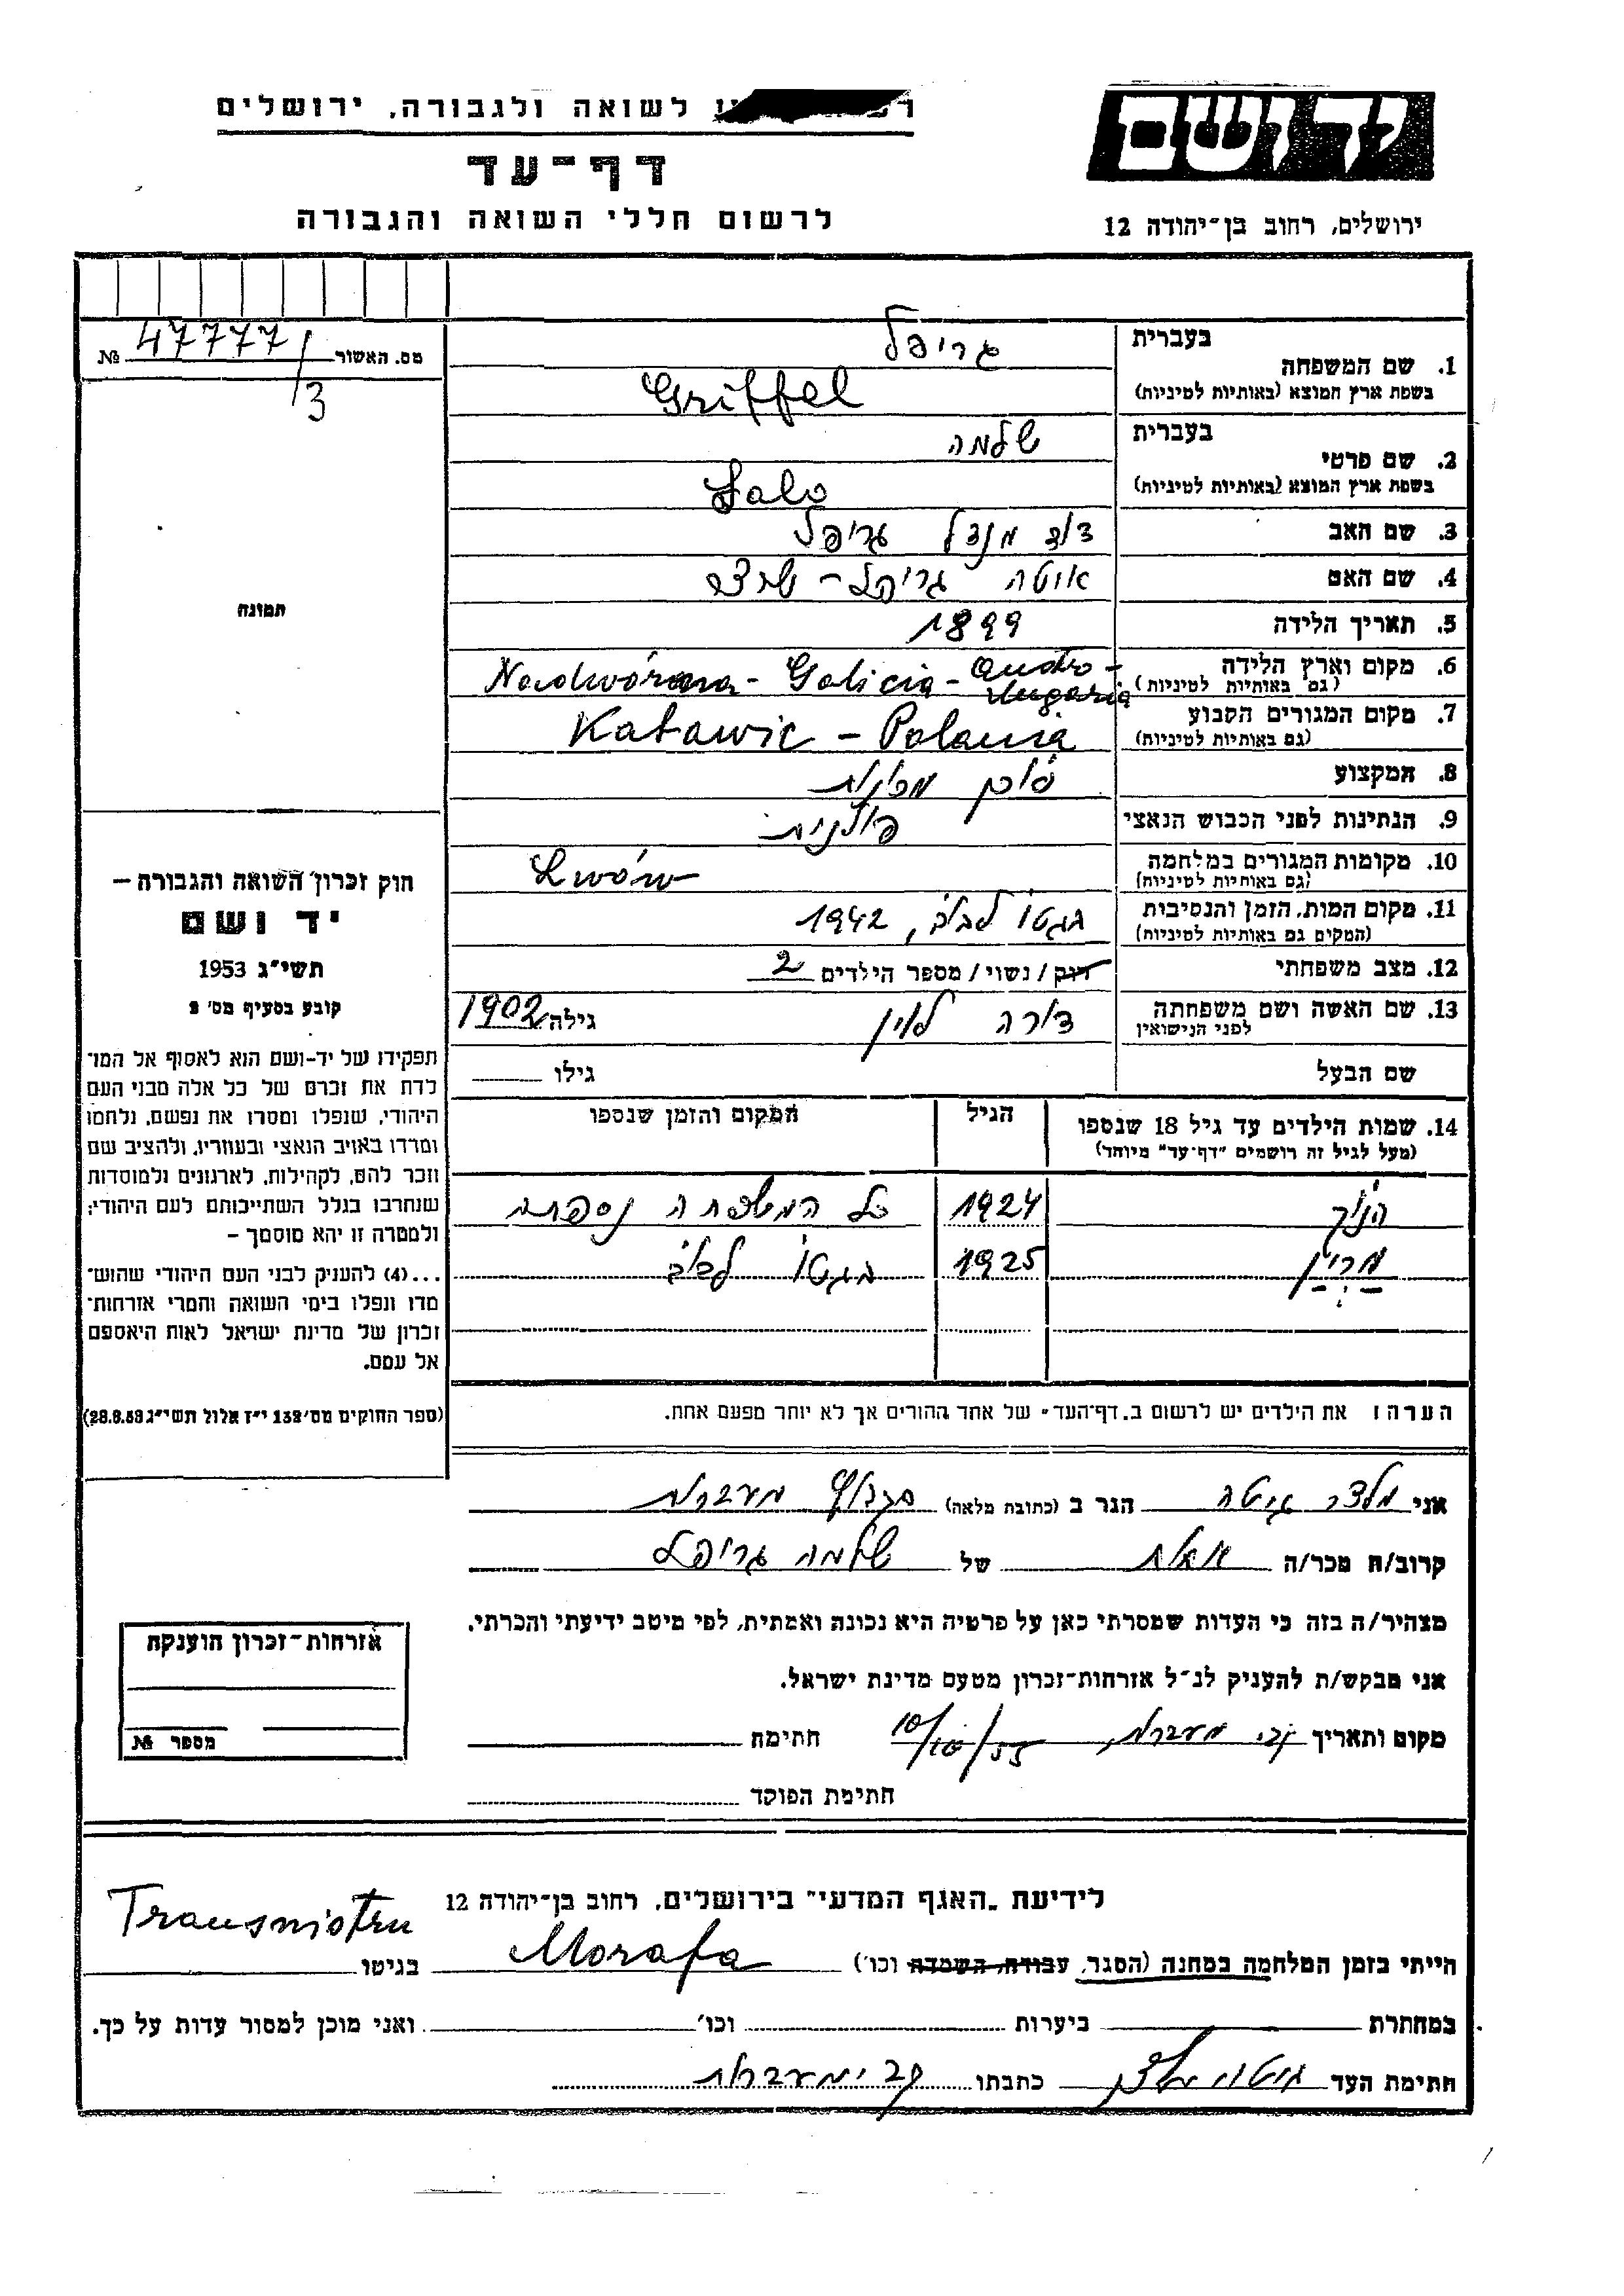 ידושם
ירושלים, רחוב בן־יהודה 12
לשואה ולגבורה, ירושלים
דף־עד
לרשום חללי השואה והגבורה
מס. האשור 47777/3 №
תמונה
בעברית גריפל
1. שם המשפחה
בשפת ארץ המוצא (באותיות לטיניות) Griffel
בעברית שלמה
2. שם פרטי
בשפת ארץ המוצא (באותיות לטיניות) Salo
3. שם האב דוד מנדל גריפל
4. שם האם גריפל –
5. תאריך הלידה 1899
6. מקום וארץ הלידה
(גם באותיות לטיניות) Nadwórna - Galicia - Austro-Ungaria
7. מקום המגורים הקבוע
(גם באותיות לטיניות) Katowic - Polania
8. המקצוע סוכן מכונות
9. הנתינות לפני הכבוש הנאצי פולנית
10. מקומות המגורים במלחמה
(גם באותיות לטיניות) Lwów
11. מקום המות, הזמן והנסיבות
(המקום גם באותיות לטיניות) בגטו לבוב, 1942
12. מצב משפחתי רוק / נשוי / מספר הילדים 2
13. שם האשה ושם משפחתה
לפני הנישואין דורה לוין גילה 1902
שם הבעל גילו
14. שמות הילדים עד גיל 18 שנספו הגיל המקום והזמן שנספו
(מעל לגיל זה רושמים "דף־עד" מיוחד)
הניך 1924 כל המשפחה נספתה
מרין 1925 בגטו לבוב
הערה: את הילדים יש לרשום ב„דף־העד" של אחד ההורים אך לא יותר מפעם אחת.
חוק זכרון השואה והגבורה –
יד ושם
תשי"ג 1953
קובע בסעיף מס' 2
תפקידו של יד־ושם הוא לאסוף אל המו־
לדת את זכרם של כל אלה מבני העם
היהודי, שנפלו ומסרו את נפשם, נלחמו
ומרדו באויב הנאצי ובעוזריו, ולהציב שם
וזכר להם, לקהילות, לארגונים ולמוסדות
שנחרבו בגלל השתייכותם לעם היהודי;
ולמטרה זו יהא מוסמך –
...(4) להעניק לבני העם היהודי שהוש־
מדו ונפלו בימי השואה והמרי אזרחות־
זכרון של מדינת ישראל לאות היאספם
אל עמם.
(ספר החוקים מס' 132 י"ז אלול תשי"ג 28.8.53)
אני מלצר גיטה הגר ב (כתובת מלאה) מעברות
קרוב/ה מכר/ה אחות של שלמה גריפל
מצהיר/ה בזה כי העדות שמסרתי כאן על פרטיה היא נכונה ואמתית, לפי מיטב ידיעתי והכרתי.
אני מבקש/ת להעניק לנ"ל אזרחות־זכרון מטעם מדינת ישראל.
מקום ותאריך מעברות, 10/10/55 חתימה
חתימת הפוקד
אזרחות־זכרון הוענקה
מספר №
לידיעת „האגף המדעי" בירושלים, רחוב בן־יהודה 12
הייתי בזמן המלחמה במחנה (הסגר, עבודה, השמדה וכו') Morafa בגיטו Transnistru
במחתרת ביערות וכו' ואני מוכן למסור עדות על כך.
חתימת העד גיטה מלצר כתבתו מעברות